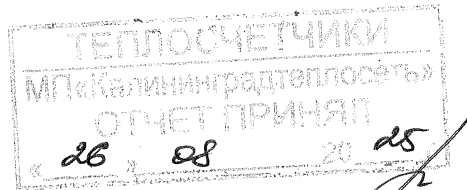 ТЕПЛОСЧЕТЧИКИ
МП«Калининградтеплосеть»
ОТЧЕТ ПРИНЯЛ
« 26 » 08 20 25